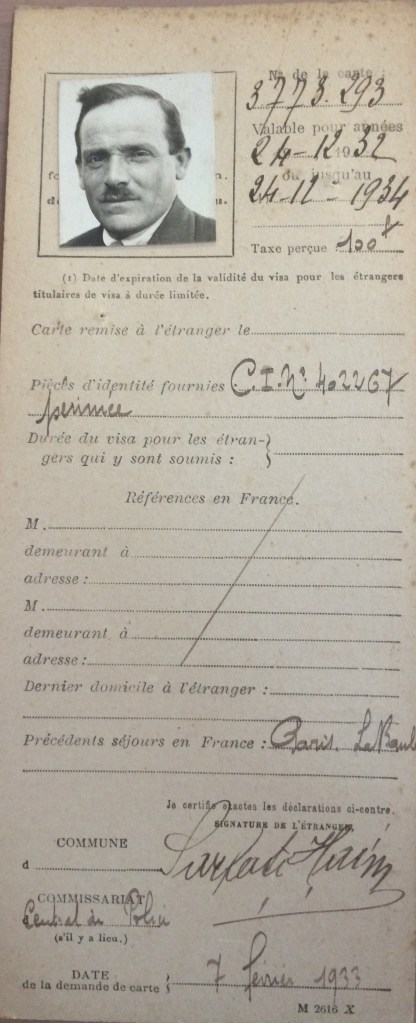 N° de la carte
3773.293
Valable pour années
24-12 1932
ou jusqu'au
24-12-1934
Taxe perçue 100f
(1) Date d'expiration de la validité du visa pour les étrangers
titulaires de visa à durée limitée.
Carte remise à l'étranger le
Pièces d'identité fournies C.I. N° 402267
perimée
Durée du visa pour les étran-
gers qui y sont soumis :
Références en France.
M.
demeurant à
adresse :
M.
demeurant à
adresse :
Dernier domicile à l'étranger :
Précédents séjours en France : Paris. La Baule
Je certifie exactes les déclarations ci-contre.
SIGNATURE DE L'ÉTRANGER,
COMMUNE
d
Sarfati Haim
COMMISSARIAT
Central de Police
(s'il y a lieu.)
DATE
de la demande de carte
7 février 1933
M 2616 X